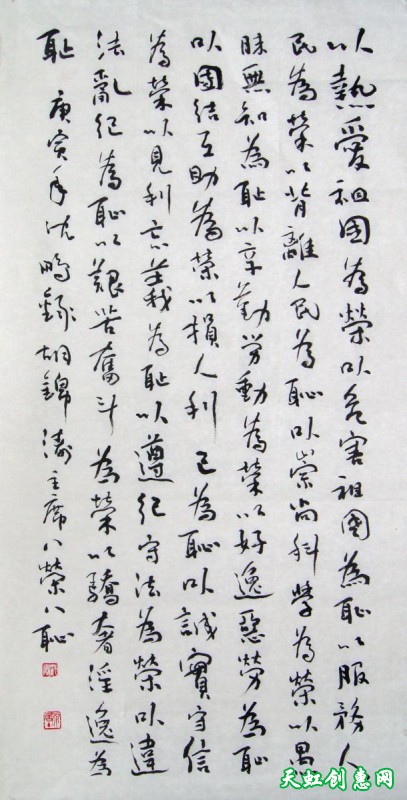 以熱愛祖國為榮以危害祖國為恥以服務人
民為榮以背離人民為恥以崇尚科學為榮以愚
昧無知為恥以辛勤勞動為榮以好逸惡勞為恥
以團結互助為榮以損人利己為恥以誠實守信
為榮以見利忘義為恥以遵紀守法為榮以違
法亂紀為恥以艱苦奮斗為榮以驕奢淫逸為
恥 庚寅年沈鵬錄胡錦濤主席八榮八恥
天虹创惠网